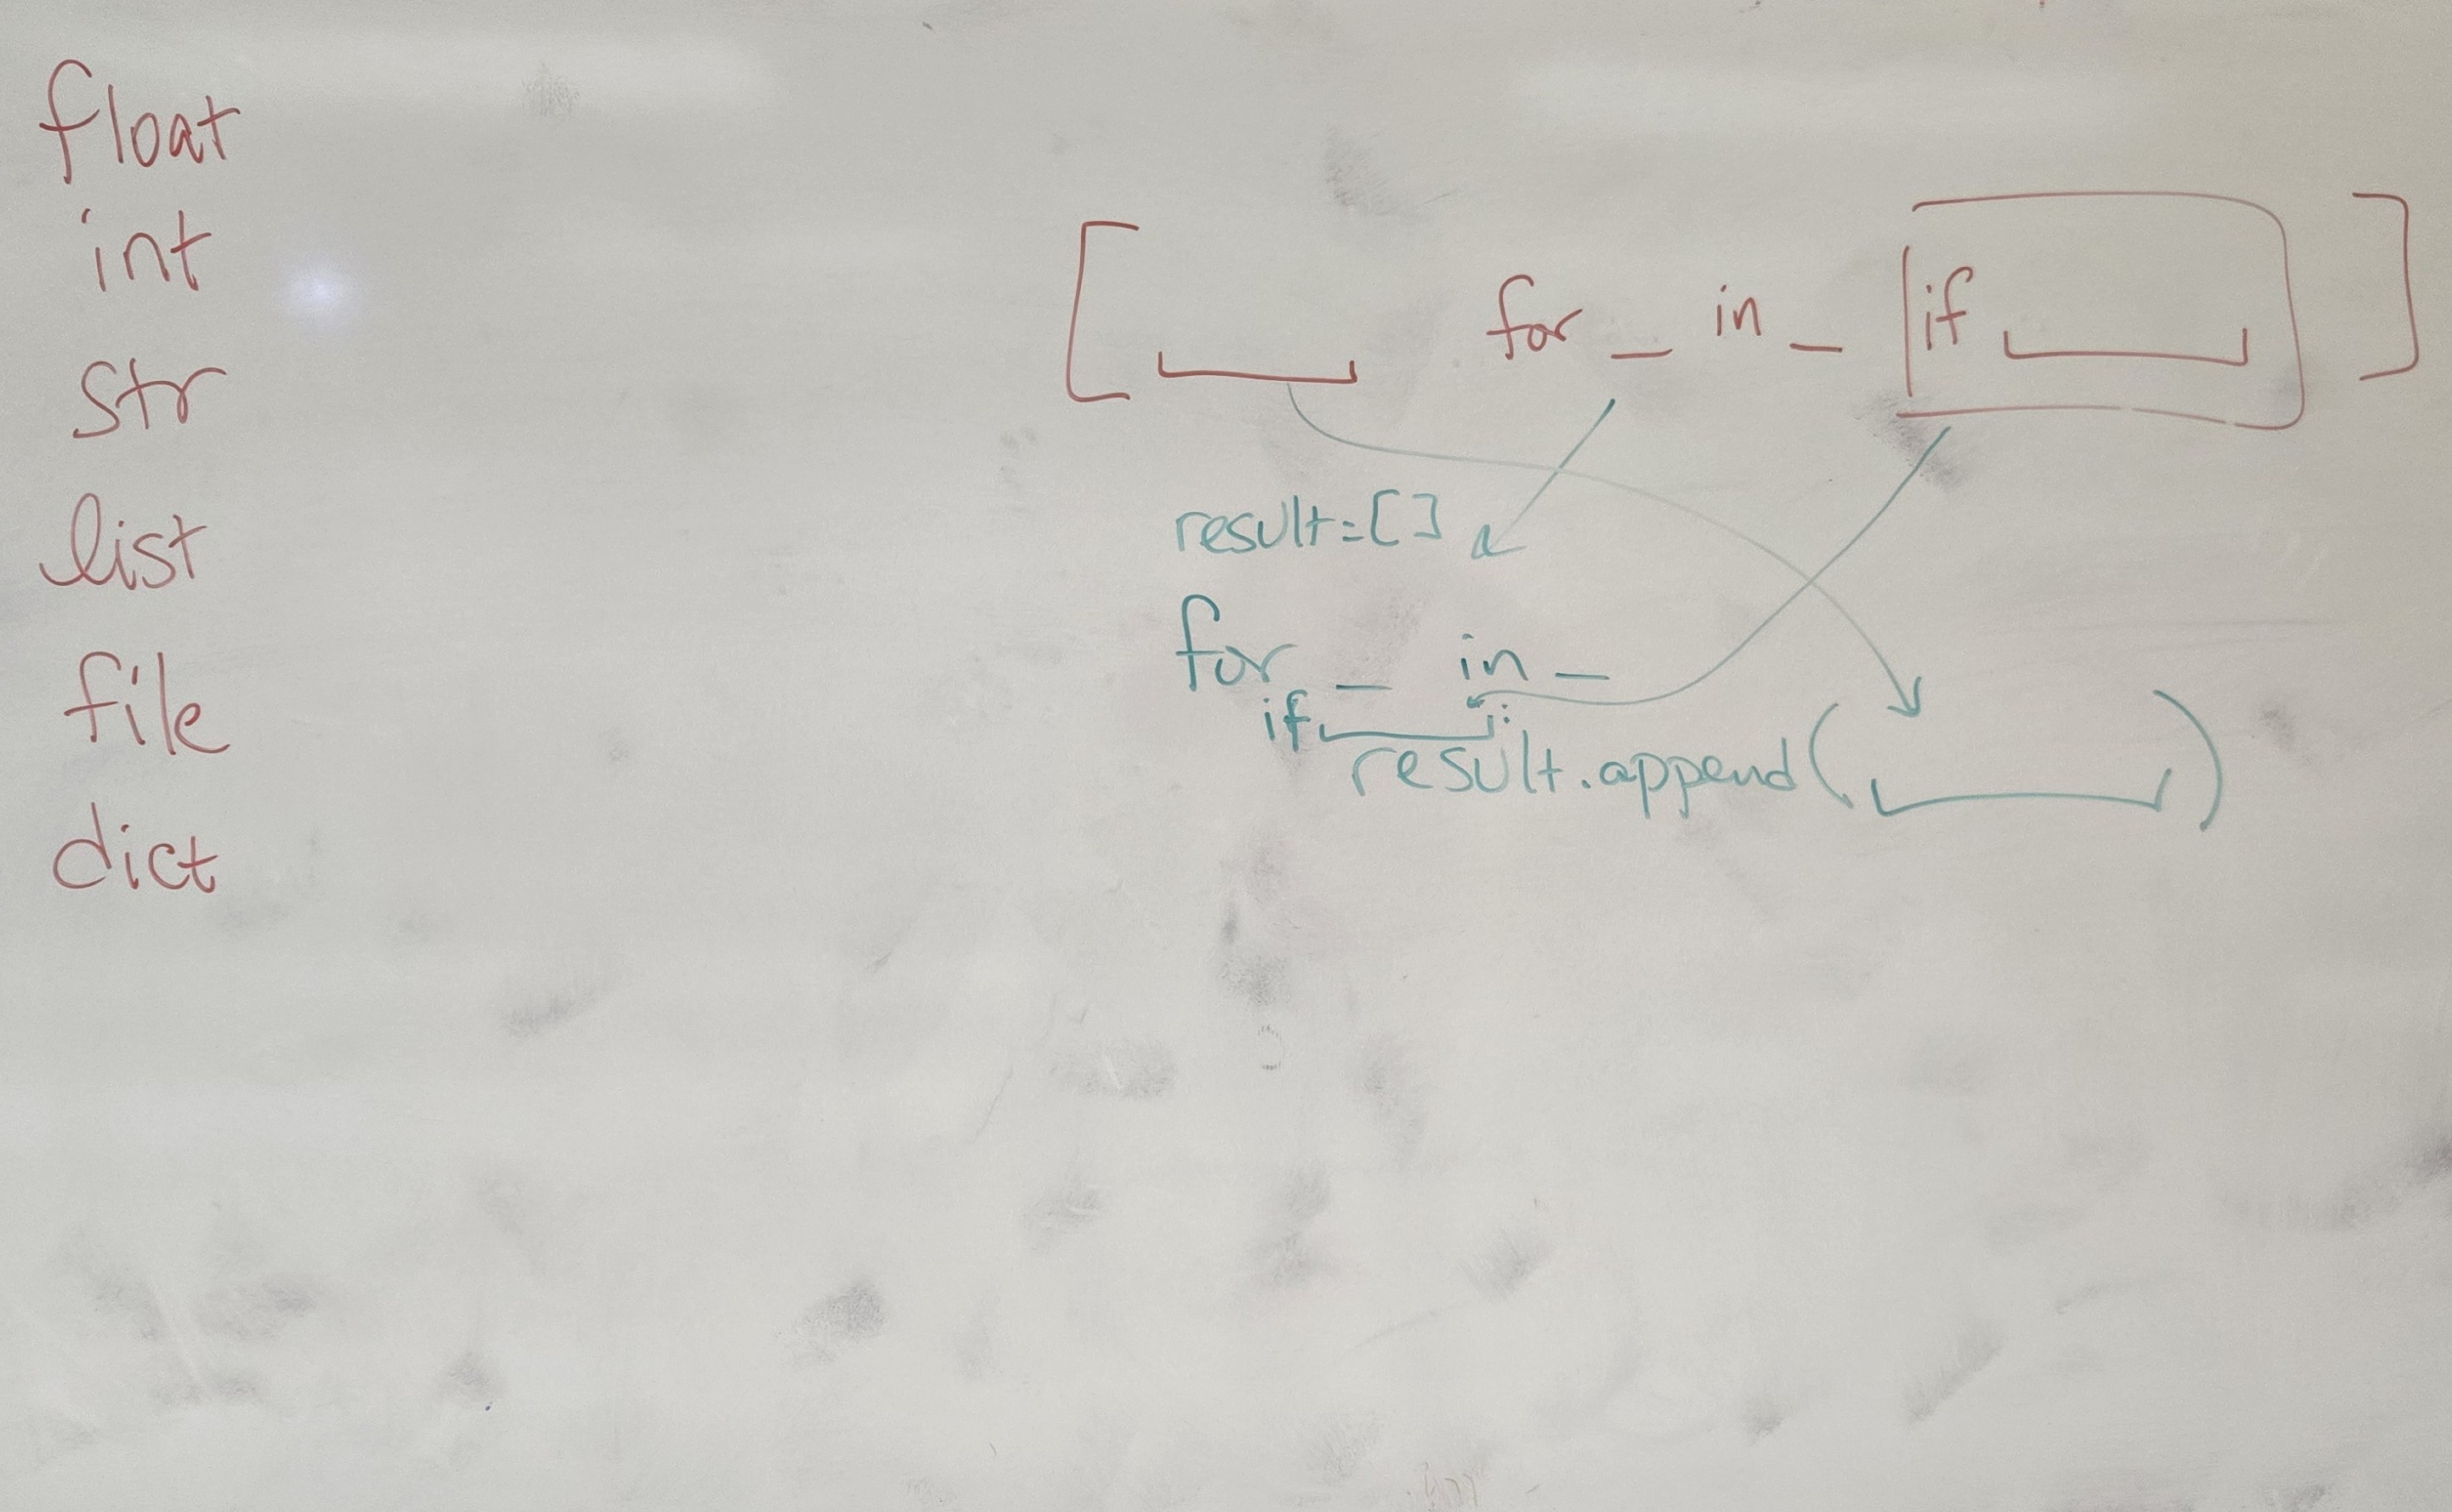 float
int
str
list
file
dict
[ ___ for _ in _ if ___ ]
result=[]
for _ in _
if ___:
result.append(___)